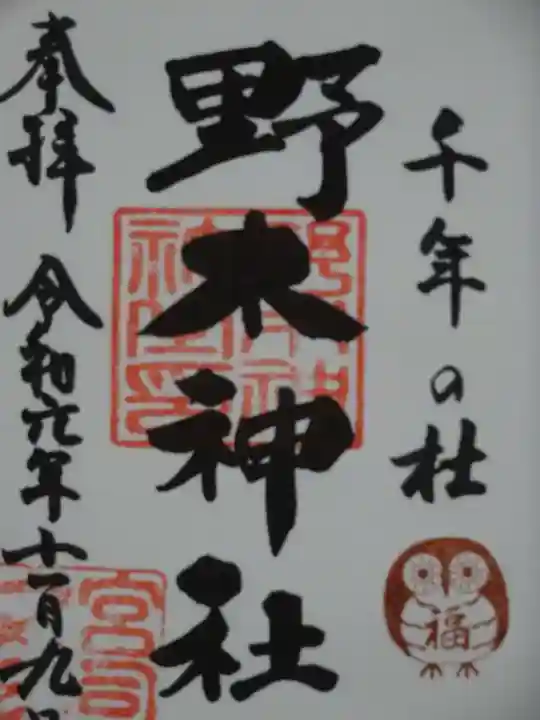 千年の杜
福
野木神社
奉拝 令和六年十一月九日
宮司